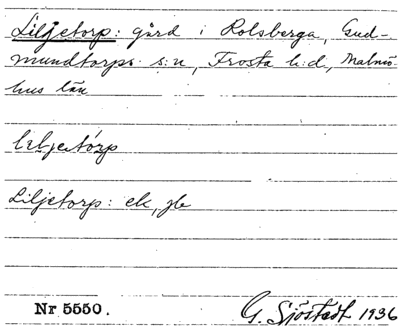 Liljetorp: gård i Rolsberga, Gud-
mundtorps s:n, Frosta h:d, Malmö-
hus län
Liljetorp: ek, jb
Nr 5550.
G. Sjöstedt 1936